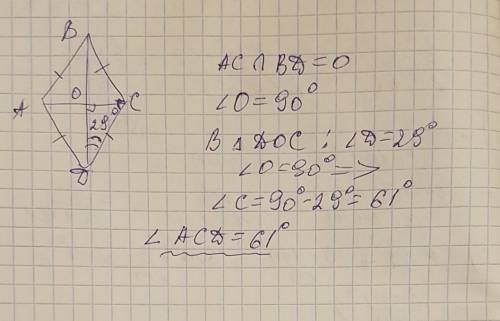 B
A
O
C
29°
D
AC ∩ BD = O
∠O = 90°
В △ DOC : ∠D = 29°
∠O = 90° =>
∠C = 90° - 29° = 61°
∠ ACD = 61°